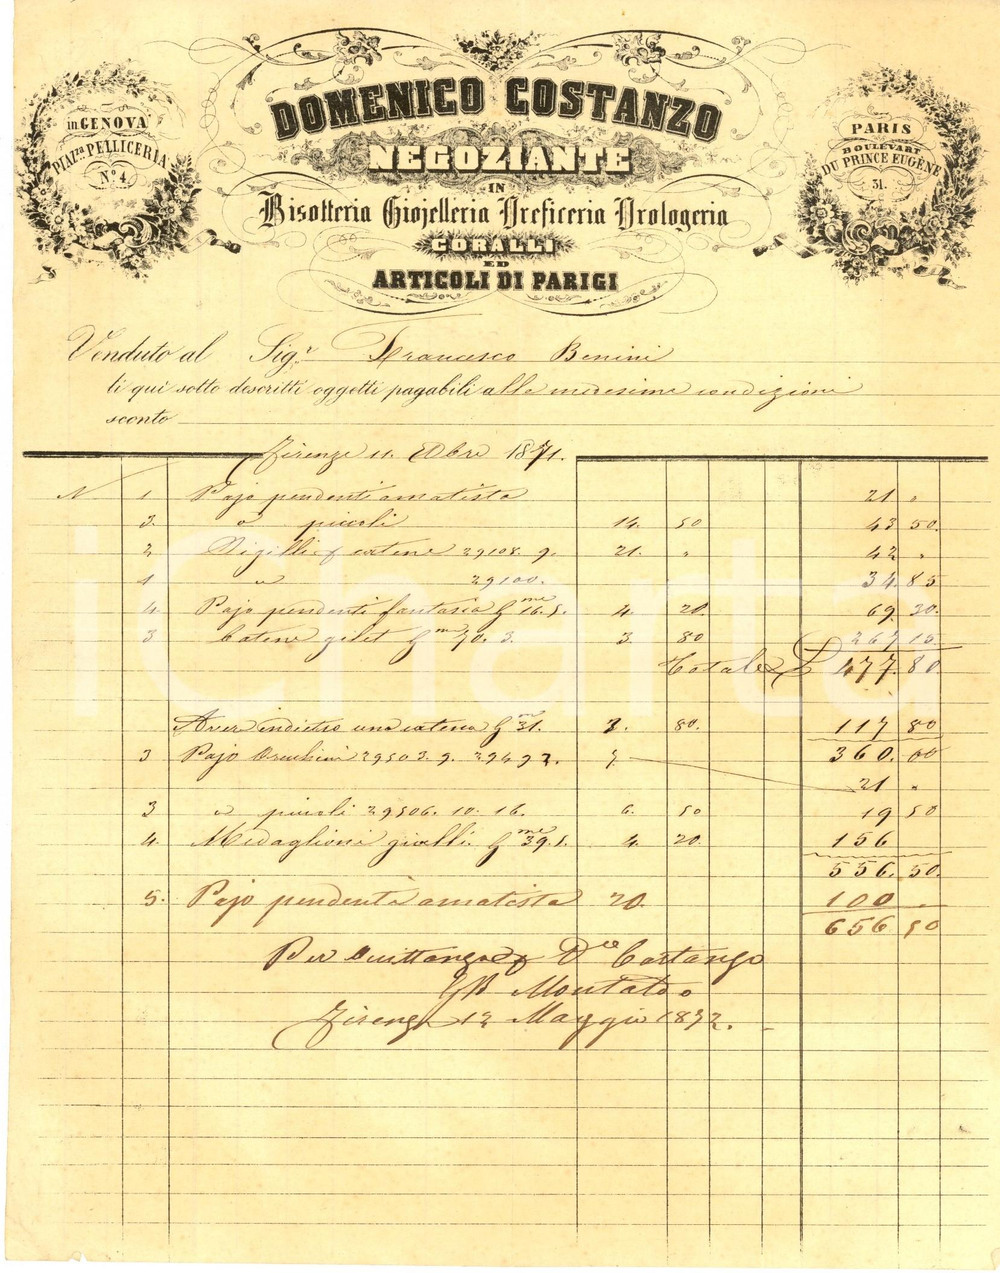 DOMENICO COSTANZO
NEGOZIANTE
IN
Bisotteria Giojelleria Oreficeria Orologeria
CORALLI
ED
ARTICOLI DI PARIGI
in GENOVA
PIAZZa PELLICERIA
No. 4.
PARIS
BOULEVART
DU PRINCE EUGÈNE
31.
Venduto al Sig.r Francesco Benini
li qui sotto descritti oggetti pagabili alle medesime condizioni
sconto
Firenze 11. 1871.
N 1 Pajo pendenti amatista 21 "
3. " piccoli 14. 50 43 50.
2 Sigilli catene 29108. 9. 21. " 42 "
1 " 29100. 34. 85
4. Pajo pendenti fantasia 16.5. 4 20. 69. 30.
3 Catene 70. 3. 3. 80 267 15.
Totale £ 477. 80
Aver indietro una catena 31. 3. 80. 117 80
360. 00
3 Pajo Orecchini 29503. 9. 29492. 7. 21 "
3 " piccoli 29506. 10. 16. 6. 50 19 50
4. Medaglioni gioelli 39.1. 4. 20. 156
556. 50.
5. Pajo pendenti amatista 20. 100 .
656 50
Per Quittanza Dco Costanzo
GB Montaldo
Firenze 12 Maggio 1872.
iCharta